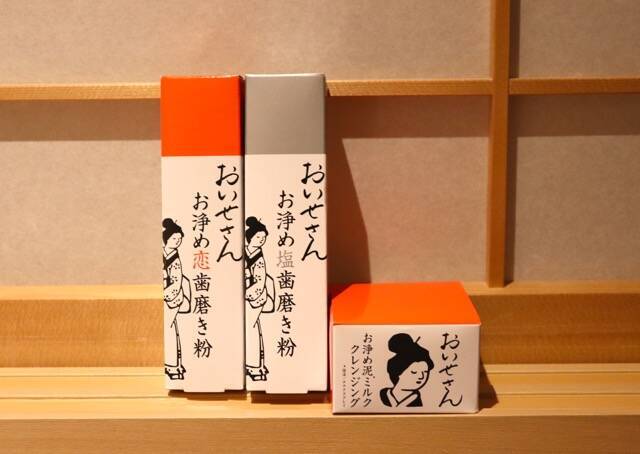 おいせさん
お浄め恋歯磨き粉
おいせさん
お浄め塩歯磨き粉
おいせさん
お浄め泥ミルク
クレンジング